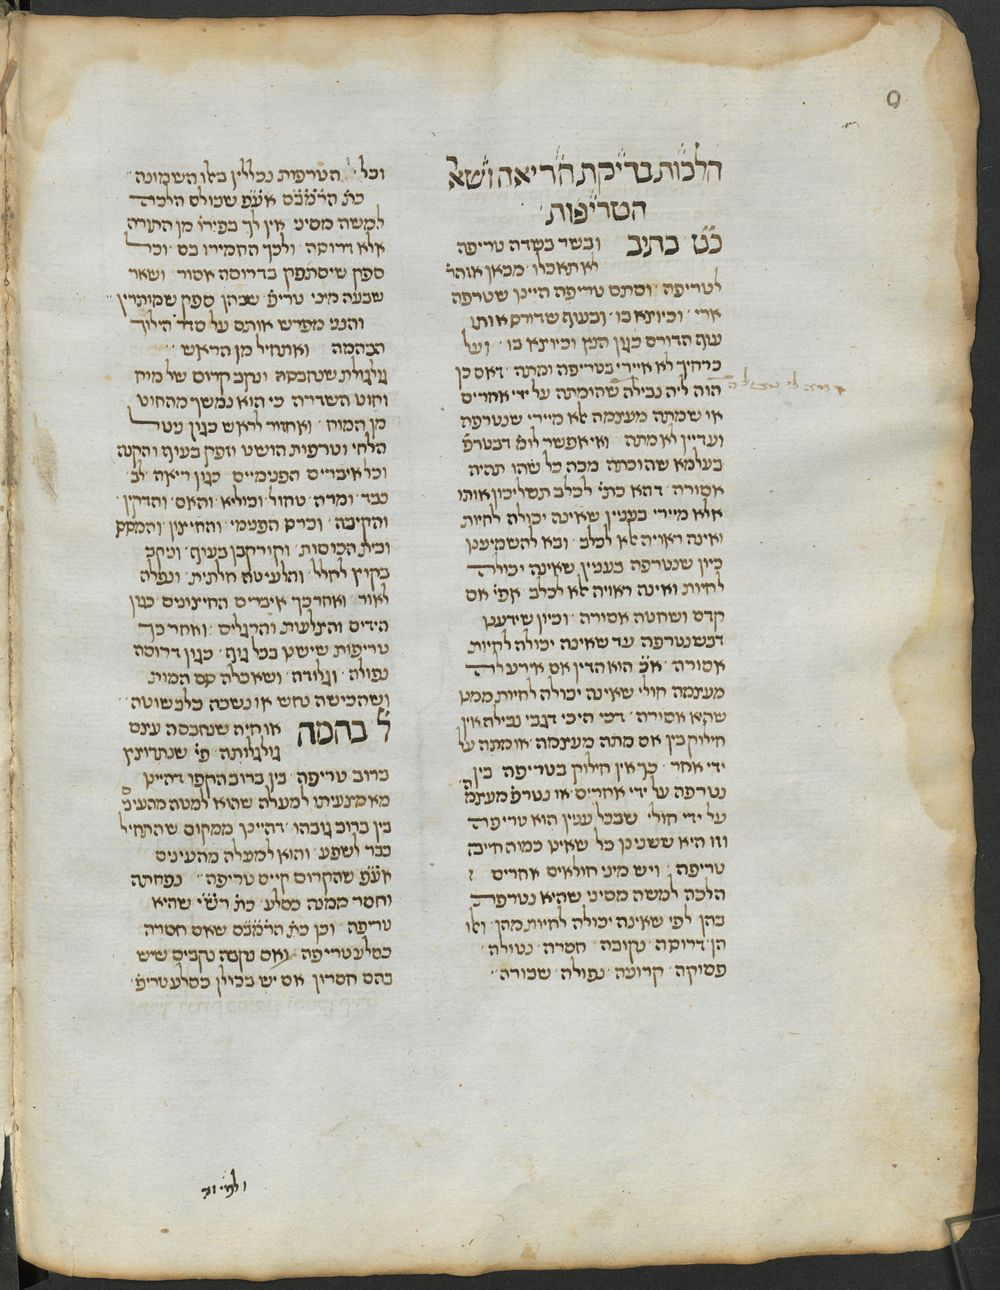 הלכות בדיקת הריאה ושאר
הטריפות
כט כתיב ובשר בשדה טריפה
לא תאכלו מכאן אזהר
לטריפה וסתם טריפה היינו שטרפה
ארי וכיוצא בו ובעוף שדורס אותו
עוף הדורס כגון הנץ וכיוצא בו ועל
כרחיך לא איירי בטריפה ומתה דאם כן
הוה ליה נבילה שהומתה על ידי אחרים
או שמתה מעצמה אלא מיירי שנטרפה
ועדיין לא מתה ואי אפשר לומ דבטרפ
בעלמא שהוכתה מכה כל שהו תהיה
אסורה דהא כתי לכלב תשליכון אותו
אלא מיירי בענין שאינה יכולה לחיות
ואינה ראויה אלא לכלב ובא להשמיענו
כיון שנטרפה בענין שאינה יכולה
לחיות ואינה ראויה אלא לכלב אפי אם
קדם ושחטה אסורה וכיון שידענו
דכשנטרפה עד שאינה יכולה לחיות
אסורה אכ הוא הדין אם אירע לה
מעצמה חולי שאינה יכולה לחיות ממנו
שהיא אסורה דכי היכי דגבי נבילה אין
חילוק בין אם מתה מעצמה או מתה על
ידי אחר כך אין חילוק בטריפה בין
נטרפה על ידי אחרים או נטרפ מעצמה
על ידי חולי שבכל ענין הוא טריפה
וזו היא ששנינו כל שאינו כמוה חייבה
טריפה ויש מיני חולאים אחרים
הלכה למשה מסיני שהיא נטרפה
בהן לפי שאינה יכולה לחיות מהן ואלו
הן דרוסה נקובה חסרה נטולה
פסוקה קרועה נפולה שבורה
וכל הטרפות נכללין באלו השמונה
כת הרמבם אעפ שכולם הלכה
למשה מסיני אין לך בפירו מן התורה
אלא דרוסה ולכך החמירו בה וכל
ספק שיסתפק בדרוסה אסור ושאר
שבעה מיני טריפ שבהן ספק שמותרין
והנני מפרש אותם על סדר הילוך
הבהמה ואתחיל מן הראש
גולגולת שנחבסה ונקב קרום של מוח
וחוט השדרה כי הוא נמשך מהחוט
מן המוח ואחזור לראש כגון ניטל
הלחי וטרפות הושט וזפק בעוף והקנה
וכל איברים הפנימיים כגון ריאה לב
כבד ומרה טחול וכוליא והאם והדקין
והקיבה וכרס הפנימי והחיצון והמסס
ובית הכוסות וקורקבן בעוף וניקב
בקוץ לחלל והלעיטה חלתית ונפלה
לאור ואחר כך איברים החיצונים כגון
הידים והצלעות והרגלים ואחר כך
טריפות שישנו בכל גוף כגון דרוסה
נפולה וגלודה ושאכלה סם המות
ושהכישה נחש או נשכה כלב שוטה
ל בהמה או חיה שנחבסה עצם
גולגולתה פי שנתרוצץ
ברוב טריפה בין ברוב הקפו דהיינו
מאמצעיתו למעלה שהוא למטה מהעינים
בין ברוב גובהו דהיינו ממקום שהתחיל
כבר לשפע והוא למעלה מהעינים
אעפ שהקרום קיים טריפה נפחתה
וחסר ממנה כסלע כת רשי שהיא
טריפה וכן כת הרמבם שאם חסרה
כסלע טריפה ואם נקבה נקבים שיש
בהם חסרון אם יש בכולן כסלע טריפ